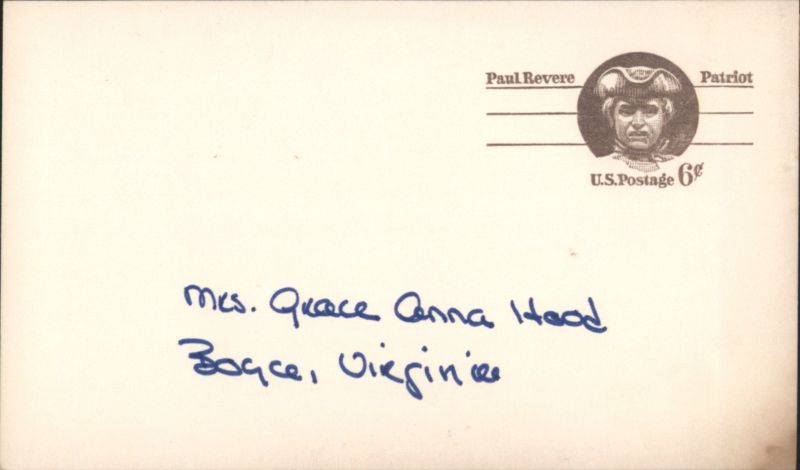 Paul Revere Patriot
U.S. Postage 6¢
Mrs. Grace Anna Hood
Boyce, Virginia